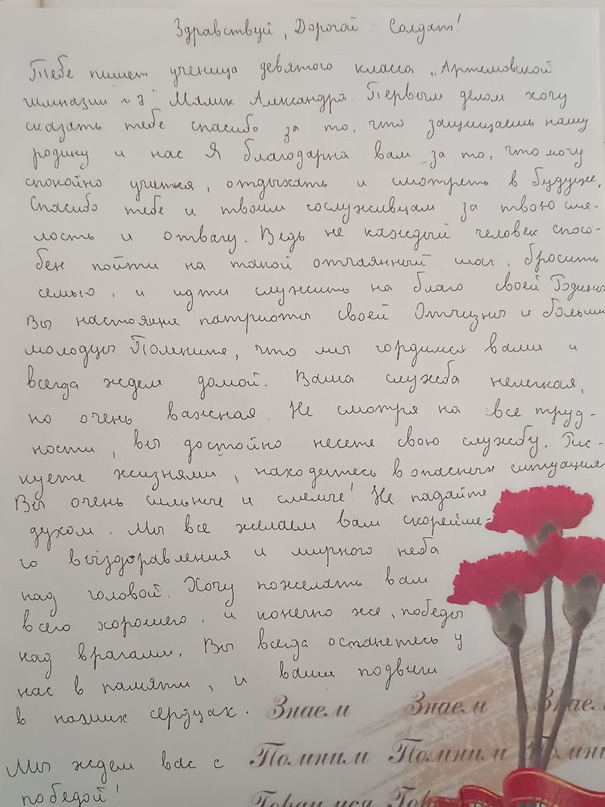 Здравствуй, Дорогой Солдат!
Тебе пишет ученица девятого класса „Артемовской
гимназии №3" Мялик Александра. Первым делом хочу
сказать тебе спасибо за то, что защищаешь нашу
родину и нас. Я благодарна вам за то, что могу
спокойно учиться, отдыхать и смотреть в будущее.
Спасибо тебе и твоим сослуживцам за твою сме-
лость и отвагу. Ведь не каждый человек спосо-
бен пойти на такой отчаянный шаг, бросить
семью, и идти служить на благо своей Родины
Вы настоящие патриоты своей Отчизны и большие
молодцы Помните, что мы гордимся вами и
всегда ждем домой. Ваша служба нелегкая,
но очень важная. Не смотря на все труд-
ности, вы достойно несете свою службу. Рис-
куете жизнями, находитесь в опасных ситуациях
Вы очень сильные и смелые! Не падайте
духом. Мы все желаем вам скорейше-
го выздоравления и мирного неба
над головой. Хочу пожелать вам
всего хорошего. и конечно же, победы
над врагами. Вы всегда останетесь у
нас в памяти, и ваши подвиги
в наших сердцах.
Знаем Знаем Знаем
Помним Помним Помни
Мы ждем вас с
победой!